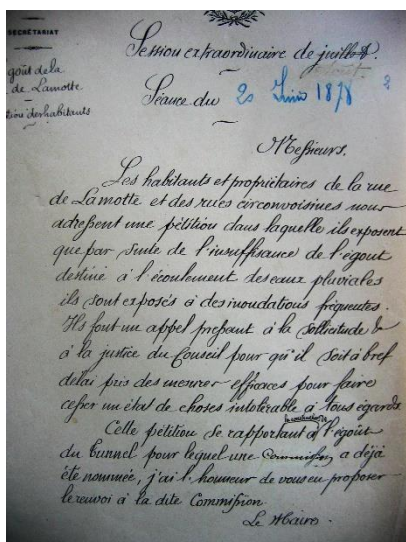 SECRÉTARIAT
Session extraordinaire de juillet.
égout de la
de Lamotte.
Séance du 20 Juin 1878
tion des habitants
Messieurs.
Les habitants et propriétaires de la rue
de Lamotte et des rues circonvoisines nous
adressent une pétition dans laquelle ils exposent
que par suite de l'insuffisance de l'égout
destiné à l'écoulement des eaux pluviales
ils sont exposés à des inondations fréquentes.
Ils font un appel pressant à la sollicitude &
à la justice du Conseil pour qu'il soit à bref
délai pris des mesures efficaces pour faire
cesser un état de choses intolérable à tous égards.
Cette pétition se rapportant à l'égout
du tunnel pour lequel une Commission a déjà
été nommée, j'ai l'honneur de vous en proposer
le renvoi à la dite Commission.
Le Maire.